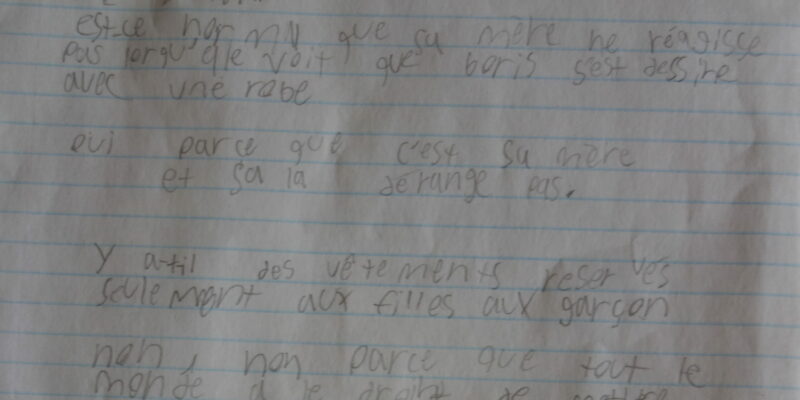 est-ce normal que sa mère ne réagisse
pas lorqu'elle voit que boris s'est dessiné
avec une robe
oui parce que c'est sa mère
et sa la dérange pas.
y a-t-il des vêtements reservés
seulement aux filles aux garçon
non, non parce que tout le
monde a le droit de mettre